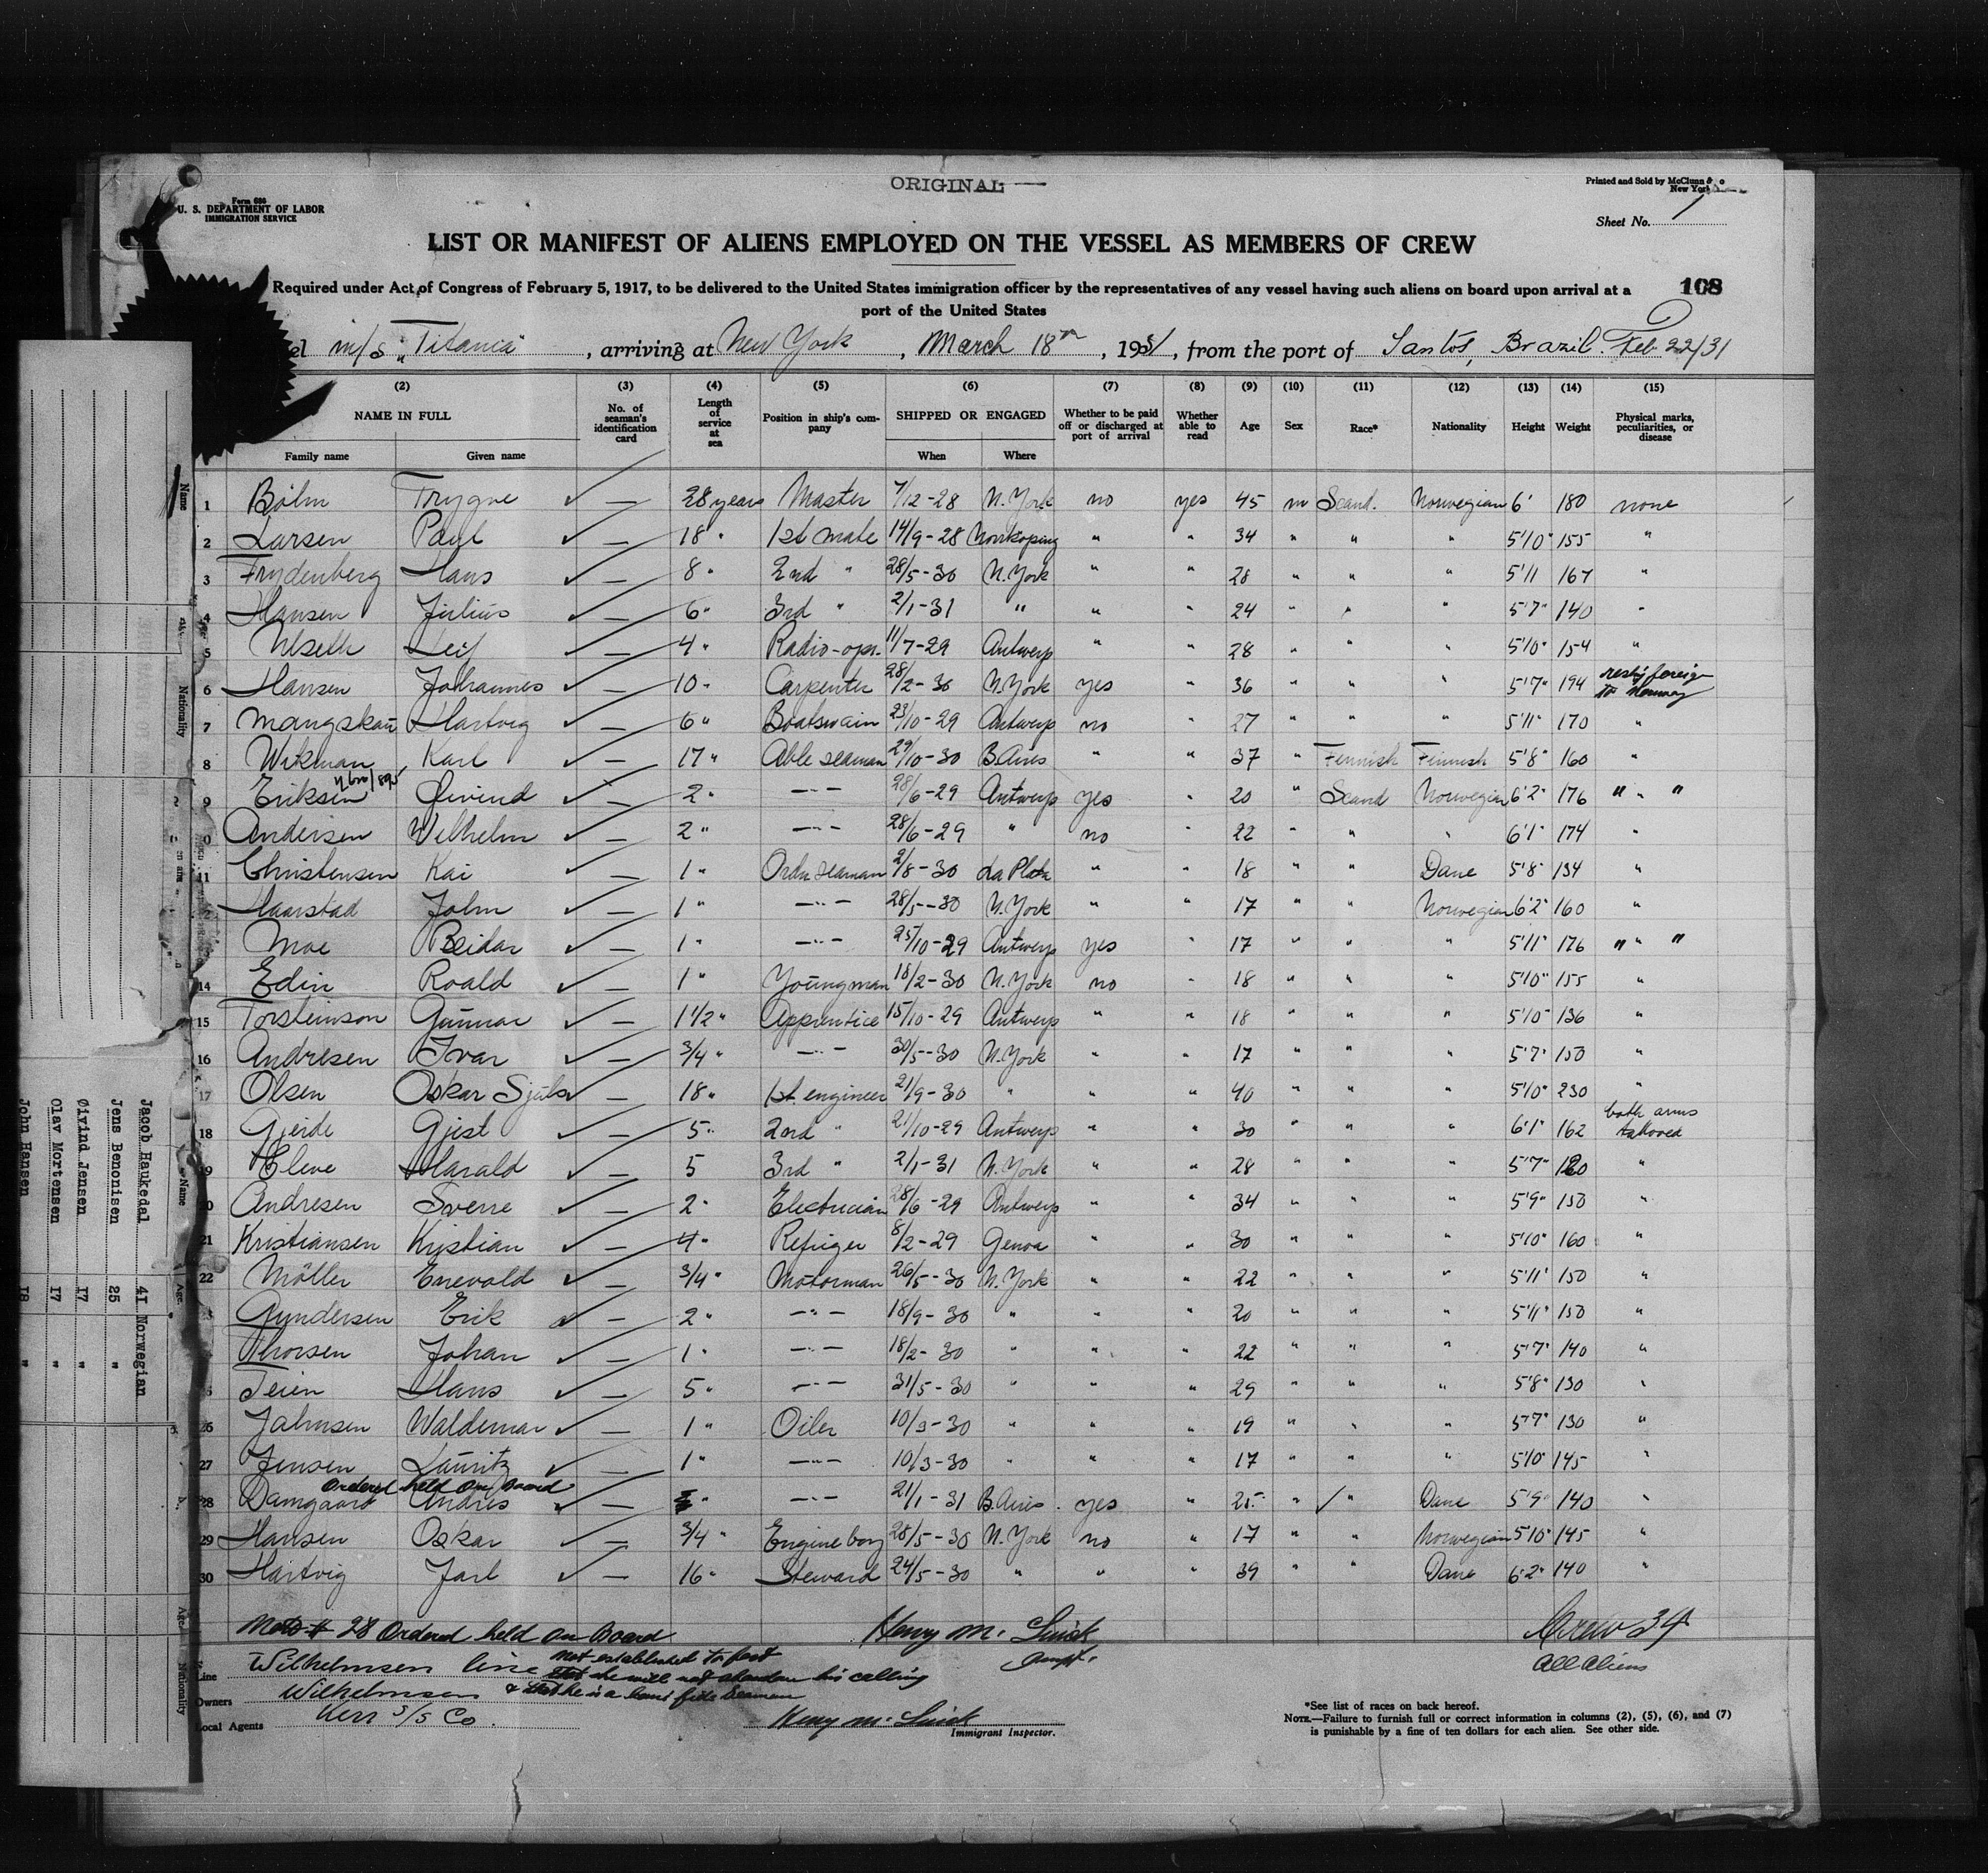 ORIGINAL
Printed and Sold by McClunn &
New York
Form 686
U. S. DEPARTMENT OF LABOR
IMMIGRATION SERVICE
Sheet No. 1
LIST OR MANIFEST OF ALIENS EMPLOYED ON THE VESSEL AS MEMBERS OF CREW
Required under Act of Congress of February 5, 1917, to be delivered to the United States immigration officer by the representatives of any vessel having such aliens on board upon arrival at a
port of the United States
108
el m/s "Titania" , arriving at New York , March 18th , 1931 , from the port of Santos, Brazil. Feb 22/31
(2) (3) (4) (5) (6) (7) (8) (9) (10) (11) (12) (13) (14) (15)
NAME IN FULL No. of seaman's identification card Length of service at sea Position in ship's company SHIPPED OR ENGAGED Whether to be paid off or discharged at port of arrival Whether able to read Age Sex Race* Nationality Height Weight Physical marks, peculiarities, or disease
Family name Given name When Where
1 Bölm Trygve ✓ — 28 years Master 7/12-28 N. York no yes 45 m Scand. Norwegian 6' 180 none
2 Larsen Paul ✓ — 18 " 1st mate 14/9-28 Norrkoping " " 34 " " " 5'10" 155 "
3 Frydenberg Hans ✓ — 8 " 2nd " 28/5-30 N. York " " 28 " " " 5'11 167 "
4 Hansen Julius ✓ — 6 " 3rd " 2/1-31 " " " 24 " " " 5'7" 140 "
5 Leif ✓ — 4 " Radio-opr. 11/7-29 Antwerp " " 28 " " " 5'10" 154 "
6 Hansen Johannes ✓ — 10 " Carpenter 28/2-30 N. York yes " 36 " " " 5'7" 194 foreign to Norway
7 Mangskau Hartvig ✓ — 6 " Boatswain 23/10-29 Antwerp no " 27 " " " 5'11" 170 "
8 Wikman Karl ✓ — 17 " Able seaman 29/10-30 B. Aires " " 37 " Finnish Finnish 5'8" 160 "
9 Eriksen Öivind ✓ — 2 " —"— 28/6-29 Antwerp yes " 20 " Scand Norwegian 6'2" 176 " " "
10 Andersen Wilhelm ✓ — 2 " —"— 28/6-29 " no " 22 " " " 6'1" 174 "
11 Christensen Kai ✓ — 1 " Ordn seaman 2/8-30 La Plata " " 18 " " Dane 5'8" 134 "
12 Haarstad John ✓ — 1 " —"— 28/5-30 N. York " " 17 " " Norwegian 6'2" 160 "
13 Moe Reidar ✓ — 1 " —"— 25/10-29 Antwerp yes " 17 " " " 5'11" 176 " " "
14 Edin Roald ✓ — 1 " Youngman 18/2-30 N. York no " 18 " " " 5'10" 155 "
15 Torsteinson Gunnar ✓ — 1 1/2 " Apprentice 15/10-29 Antwerp " " 18 " " " 5'10" 136 "
16 Andresen Ivar ✓ — 3/4 " —"— 30/5-30 N. York " " 17 " " " 5'7" 150 "
17 Olsen Oskar ✓ — 18 " 1st. engineer 21/9-30 " " " 40 " " " 5'10" 230 "
18 Gjerde Gjest ✓ — 5 " 2nd " 21/10-29 Antwerp " " 30 " " " 6'1" 162 both arms tattooed
19 Cleve Harald ✓ — 5 3rd " 2/1-31 N. York " " 28 " " " 5'7" "
20 Andresen Sverre ✓ — 2 " Electrician 28/6-29 Antwerp " " 34 " " " 5'9" 150 "
21 Kristiansen Kristian ✓ — 4 " Refriger 8/2-29 Genoa " " 30 " " " 5'10" 160 "
22 Möller Enevold ✓ — 3/4 " Motorman 26/5-30 N. York " " 22 " " " 5'11" 150 "
23 Gundersen Erik ✓ — 2 " —"— 18/9-30 " " " 20 " " " 5'11" 150 "
24 Thorsen Johan ✓ — 1 " —"— 18/2-30 " " " 22 " " " 5'7" 140 "
25 Teien Hans ✓ — 5 " —"— 31/5-30 " " " 29 " " " 5'8" 130 "
26 Jahnsen Waldemar ✓ — 1 " Oiler 10/9-30 " " " 19 " " " 5'7" 130 "
27 Jensen Lauritz ✓ — 1 " —"— 10/3-30 " " " 17 " " " 5'10" 145 "
Ordered held on Board
28 Damgaard Andres ✓ — " —"— 21/1-31 B. Aires. yes " 25 " ✓ " Dane 5'9" 140 "
29 Hansen Oskar ✓ — 3/4 " Engine boy 28/5-30 N. York no " 17 " " Norwegian 5'10" 145 "
30 Hartvig Jarl ✓ — 16 " Steward 24/5-30 " " " 39 " " Dane 6'2" 140 "
Note # 28 Ordered held on Board Henry M. Crew 34
All Aliens
Line Wilhelmsen line not established to fact
that he will not abandon his calling
& that he is a bona fide seaman
Owners Wilhelmsen
Local Agents Kerr S/S Co. Henry M.
Immigrant Inspector.
*See list of races on back hereof.
NOTE.—Failure to furnish full or correct information in columns (2), (5), (6), and (7)
is punishable by a fine of ten dollars for each alien. See other side.
Name Nationality
Name Age. Nationality
Jacob Haukedal 41 Norwegian
Jens Benonisen 25 "
Øivind Jensen 17 "
Olav Mortensen 17 "
John Hansen 18 "